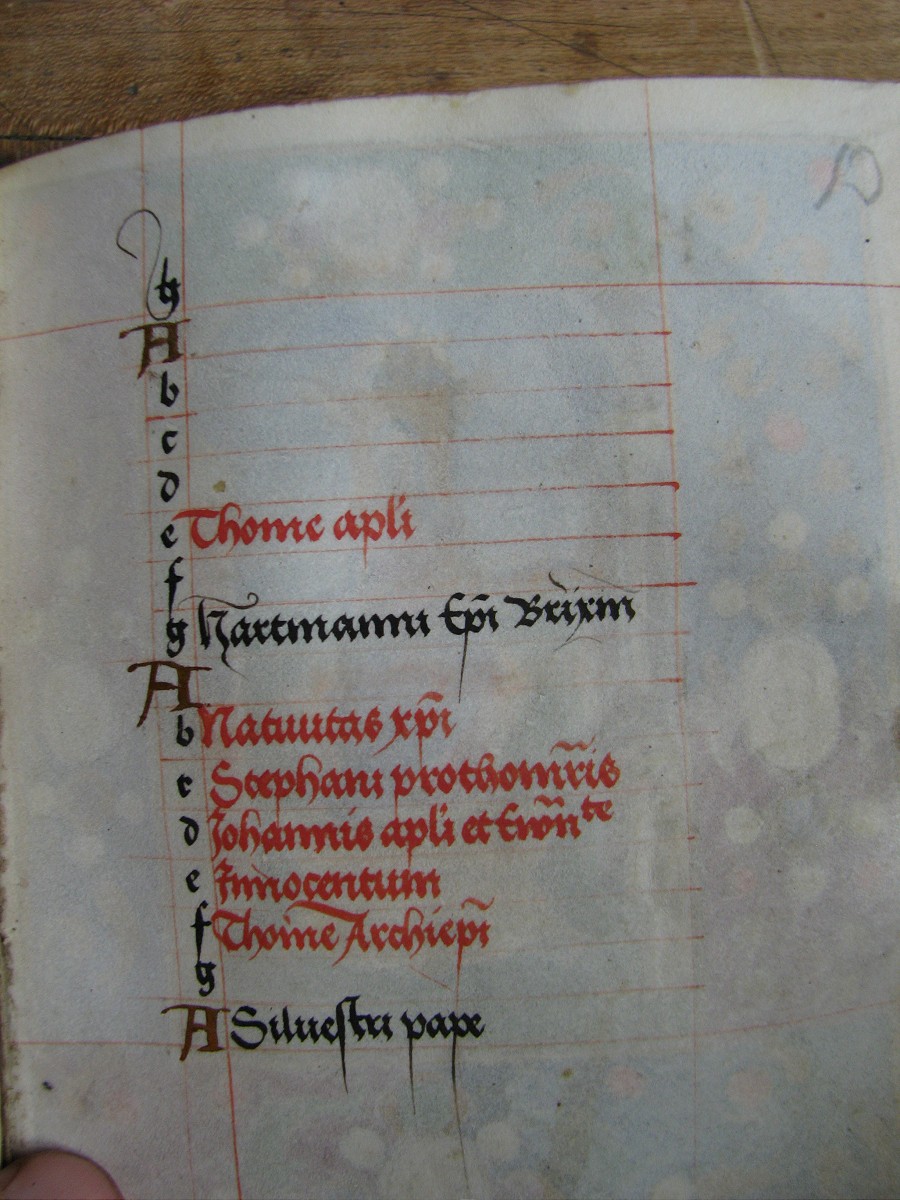 g
A
b
c
d
e Thome apl̄i
f
g Hartmanni Ep̄i Brixin̄
A
b Natiuitas xp̄i
c Stephani prothomr̄is
d Johannis apl̄i et Ewn̄te
e Innocentum
f Thome Archiep̄i
g
A Siluestri pape